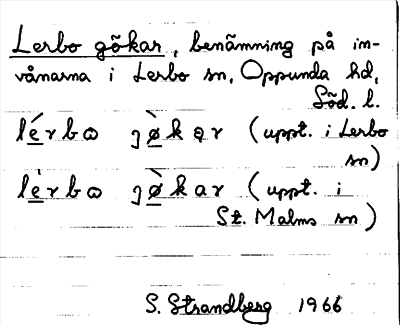 Lerbo gökar, benämning på in-
vånarna i Lerbo sn, Oppunda hd,
Söd. l.
lérbꙍ ȷø̀kąr (uppt. i Lerbo
sn)
lèrbꙍ ȷø̀kar (uppt. i
St. Malms sn)
S. Strandberg 1966